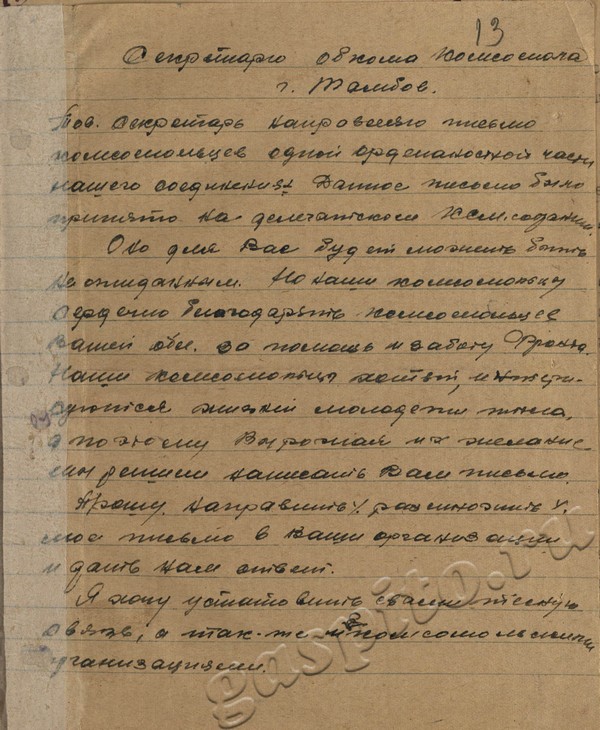 13
Секретарю обкома комсомола
г. Тамбов.
Тов. Секретарь направляю письмо
комсомольцев одной орденоносной части
нашего соединения Данное письмо было
принято на делегатском комс. собрании.
Оно для Вас будет может быть
неожиданным. Но наши комсомольцы
сердечно благодарят комсомольцев
вашей обл. за помощь и заботу фронта.
Наши комсомольцы хотят, интере-
суются жизнью молодежи тыла,
а поэтому Выражая их желание
мы решили написать Вам письмо.
Прошу направить размножить
мое письмо в Ваши организации
и дать нам ответ.
Я хочу установить с вами тесную
связь, а так-же комсомольскими
организациями.
gaspito.ru